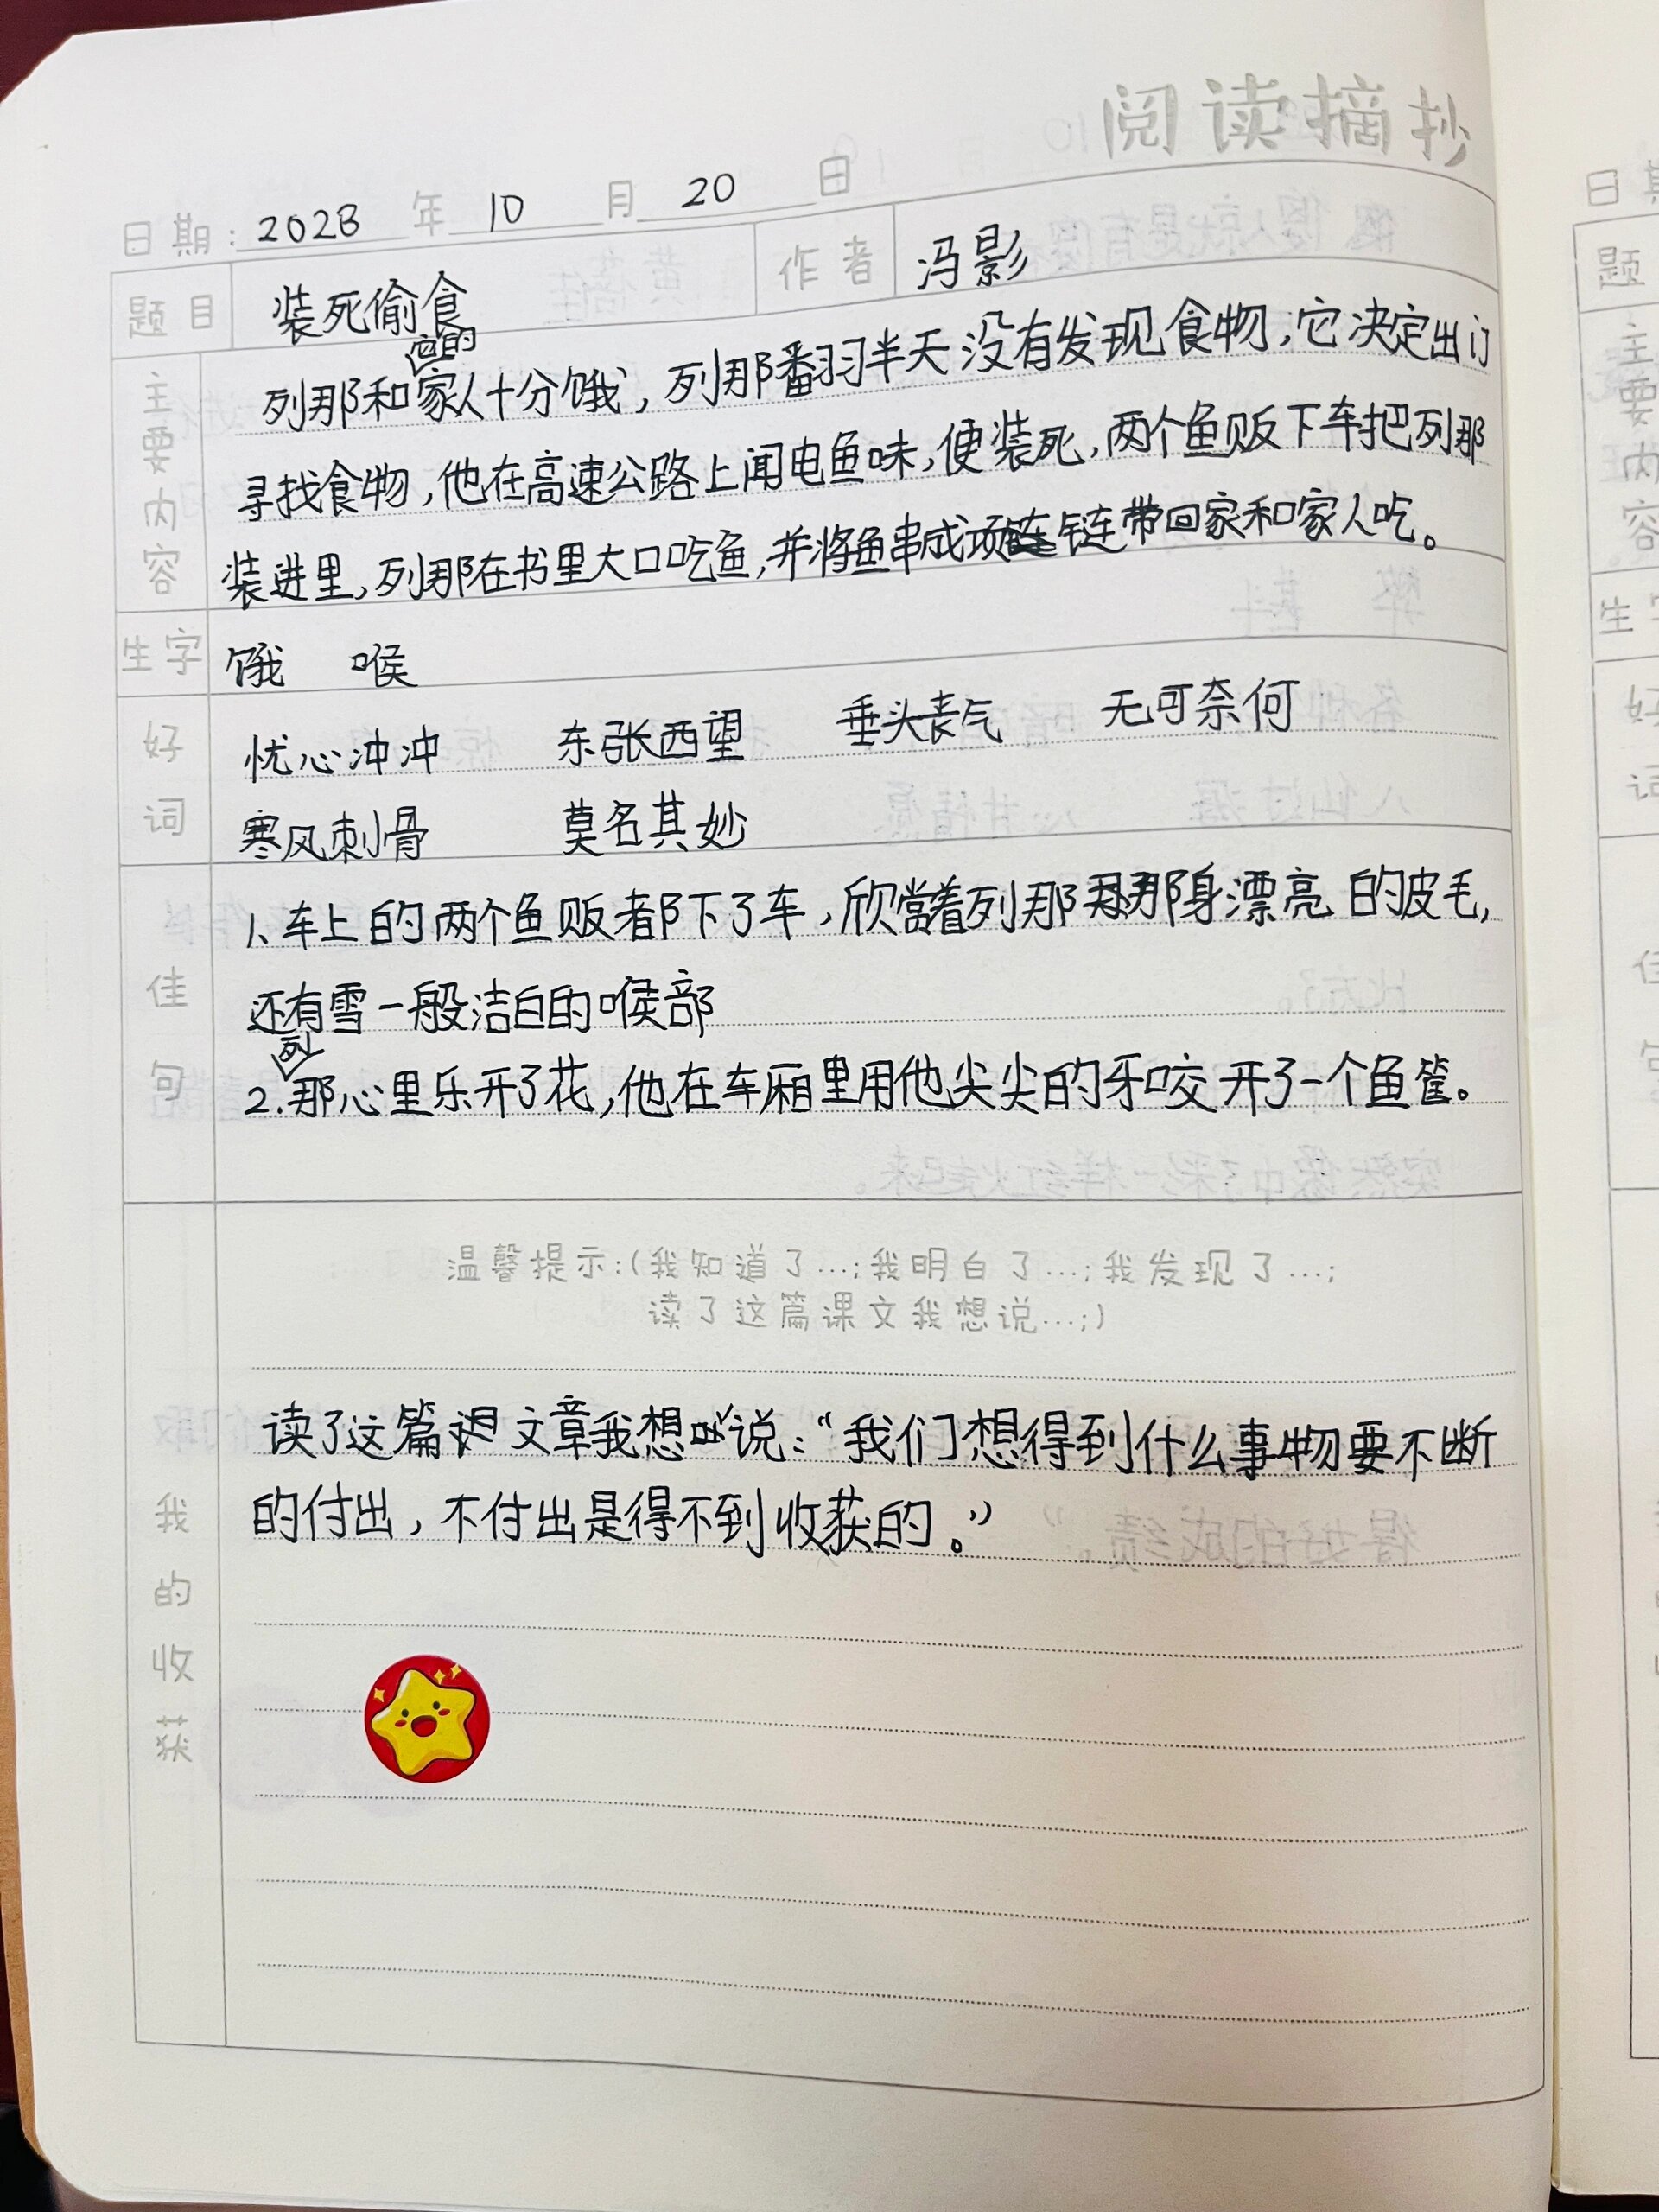 阅读摘抄
日期：2023年10月20日
题目 装死偷食 作者 冯影
主要内容
列那和它的家人十分饿，列那翻羽半天没有发现食物，它决定出门
寻找食物，他在高速公路上闻电鱼味，便装死，两个鱼贩下车把列那
装进里，列那在书里大口吃鱼，并将鱼串成项链带回家和家人吃。
生字 饿 喉
好词
忧心冲冲 东张西望 垂头丧气 无可奈何
寒风刺骨 莫名其妙
佳句
1、车上的两个鱼贩都下了车，欣赏着列那那身漂亮的皮毛，
还有雪一般洁白的喉部
2.列那心里乐开了花，他在车厢里用他尖尖的牙咬开了一个鱼筐。
我的收获
温馨提示：(我知道了…;我明白了…;我发现了…;
读了这篇课文我想说…;)
读了这篇文章我想说：“我们想得到什么事物要不断
的付出，不付出是得不到收获的。”
日期
题
主要内容
生字
好词
佳句